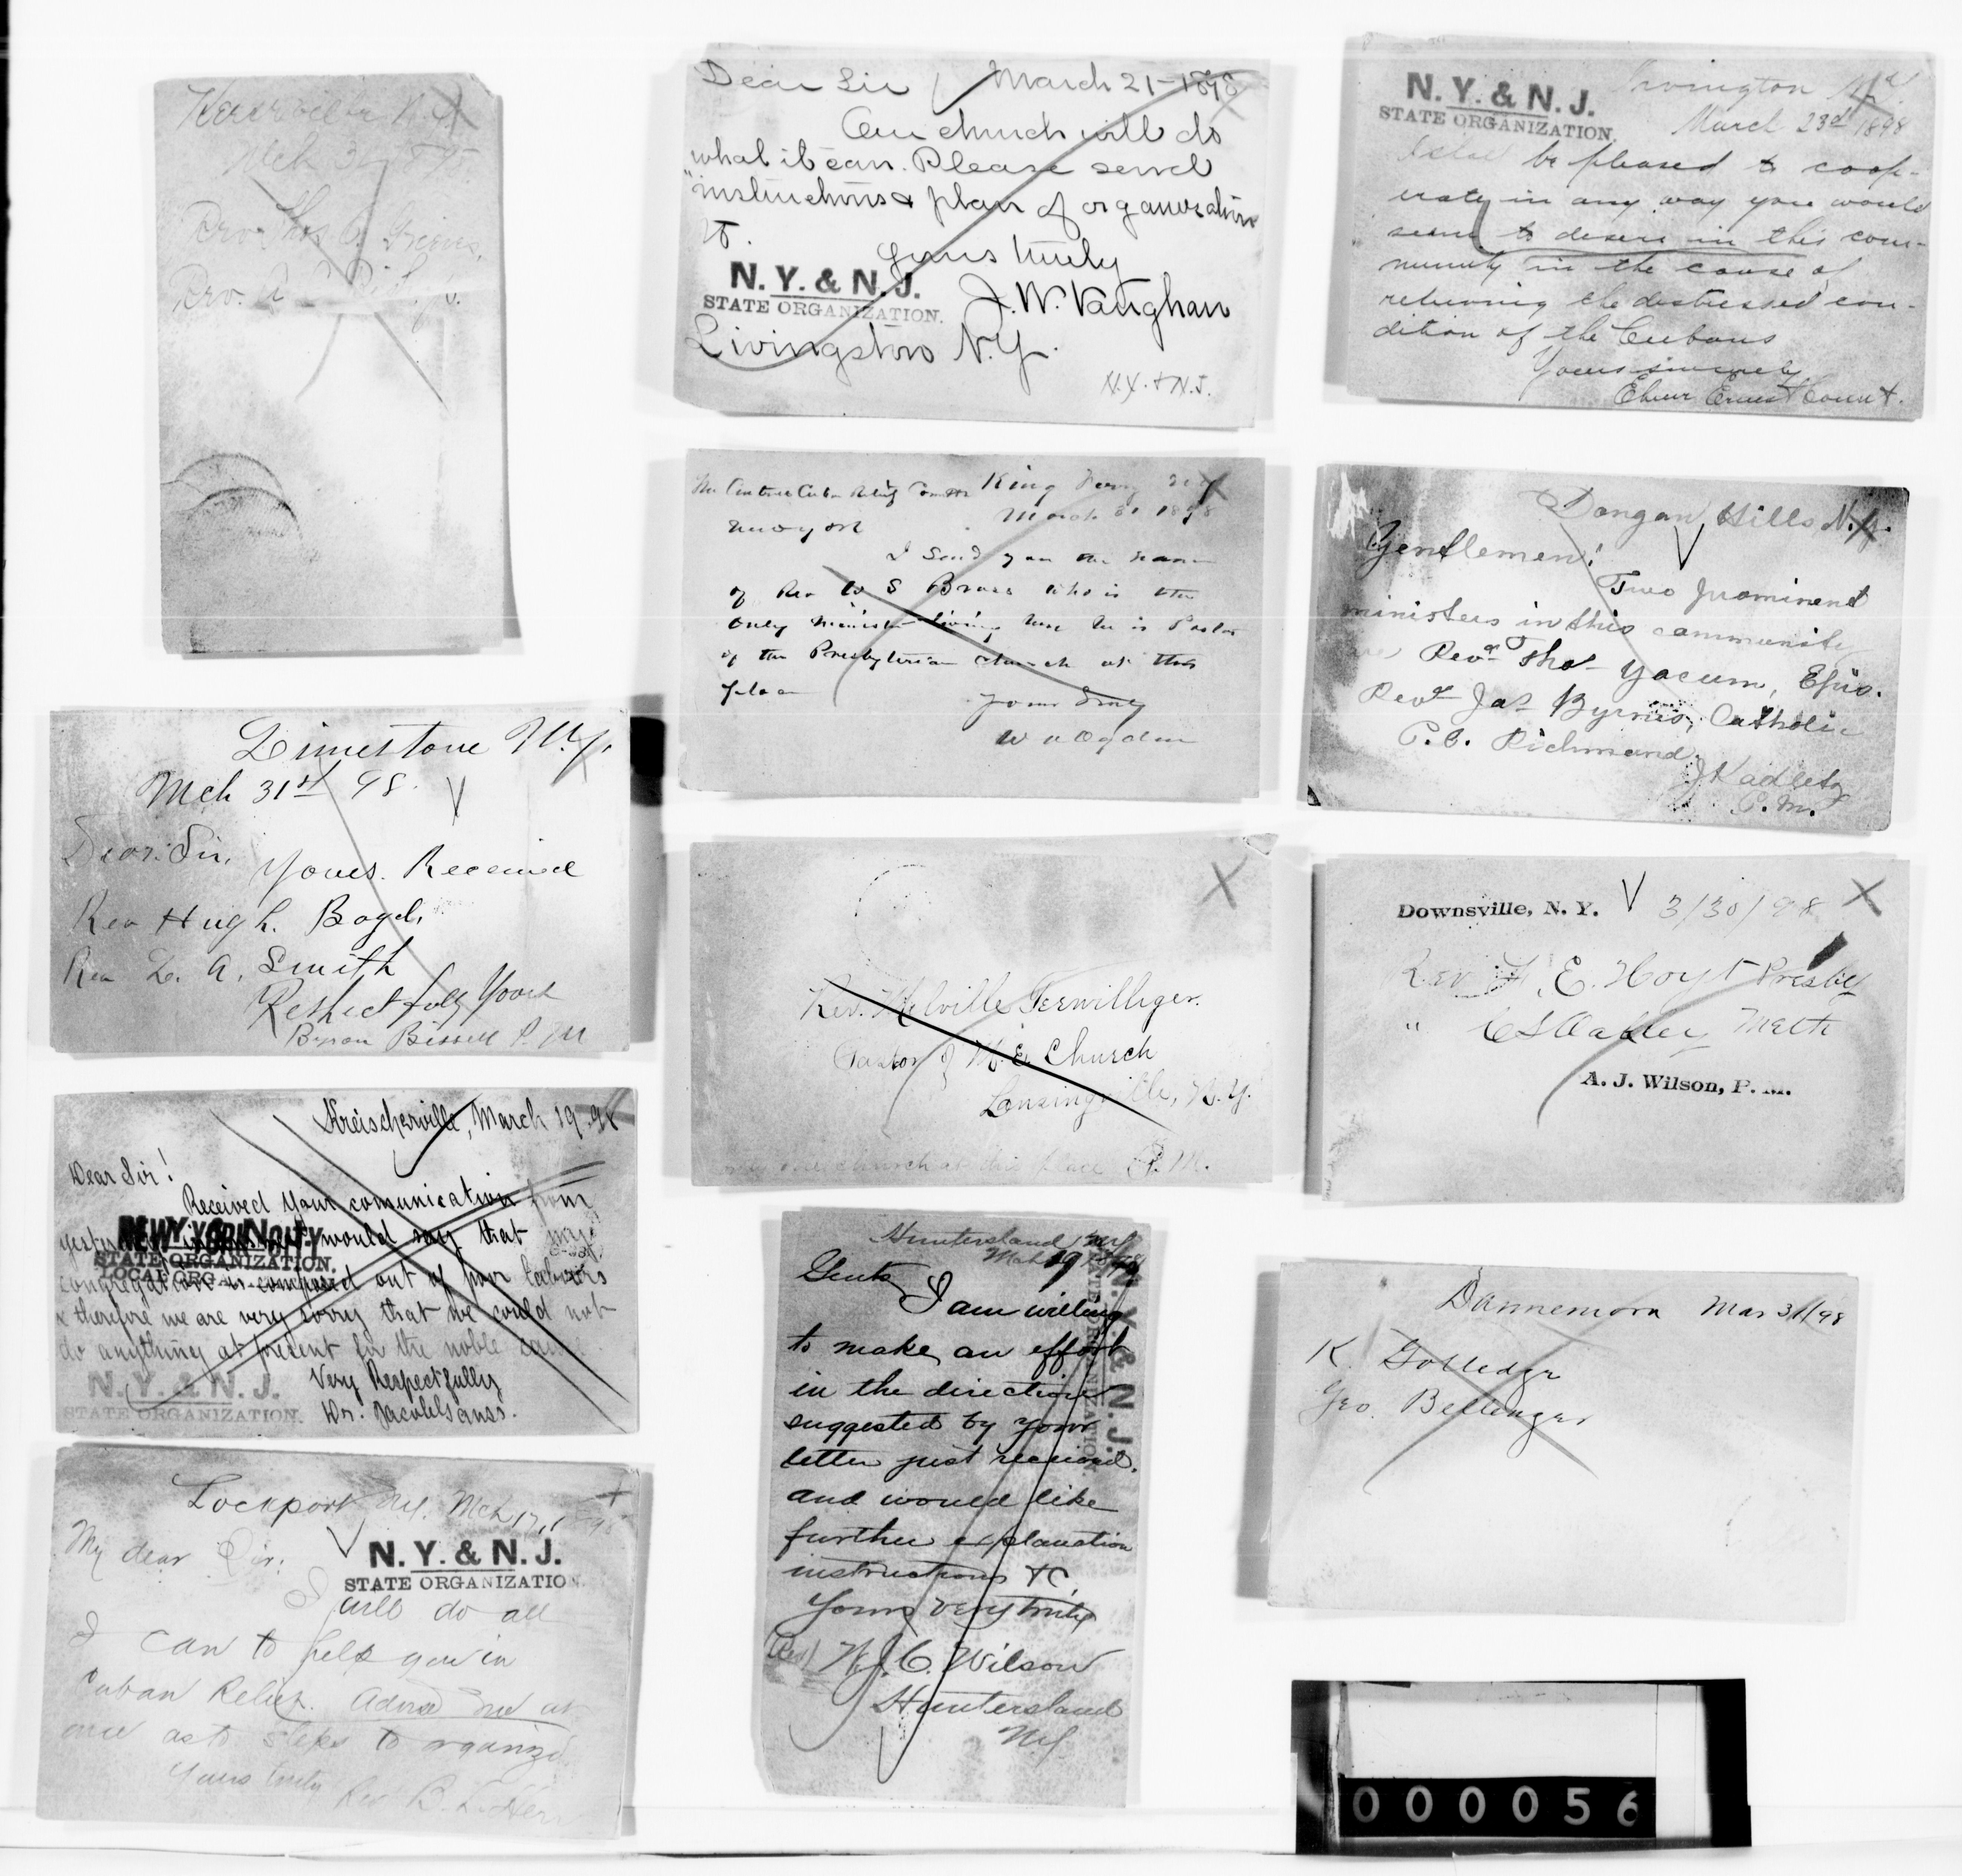 Mch 31 1898
Rev. Thos
Rev.
Limestone N.Y.
Mch 31st 98.
Dear Sir,
Yours. Received
Rev Hugh. Boyd,
Rev L. A. Smith
Respectfully Yours
Byron Bissell P.M
Kreischerville, March 19. 98
Dear Sir!
Received your comunication from
would say that my
congregation is composed out of poor labors
& therefore we are very sorry that we could not
do anything at present for the noble cause.
N. Y. & N. J.
STATE ORGANIZATION.
Very Respectfully
Lockport N.Y. Mch 17, 1898
My dear Sir:
N. Y. & N. J.
STATE ORGANIZATION
I will do all
I can to help you in
Cuban Relief. Advise me at
once as to steps to organize
Yours truly
Rev B.
Dear Sir March 21-1898
Our church will do
what it can. Please send
"instructions & plan of organization
Yours truly
N. Y. & N. J.
STATE ORGANIZATION.
J. W. Vaughan
Livingston N.Y.
N.Y. & N.J.
The Central Cuban Relief Comtte King Ferry N.Y.
New York March 31 1898
I Send you the name
of Rev W S Brass who is the
only minister living here he is Pastor
of the Presbyterian Church at this
place
Yours Truly
Ogden
X
Rev. Melville Terwilliger.
Pastor of M. E. Church
Lansingville, N. Y.
only one church at this place P. M.
Huntersland N.Y.
Mch 19 1898
Gents
I am willing
to make an effort
in the direction
suggested by your
letter just received,
and would like
further explanation
instructions &c.
Yours very truly
(Rev) W. J. C. Wilson
Huntersland
NY
N. Y. & N. J.
STATE ORGANIZATION.
N. Y. & N. J.
STATE ORGANIZATION.
Irvington
March 23d 1898
I shall be pleased to coop-
erate in any way you would
seem to desire in this com-
munity in the cause of
relieving the distressed con-
dition of the Cubans
Yours sincerely
Elmer Ernest Count.
Dongan Hills N.Y.
Gentlemen:
Two prominent
ministers in this community
are Revd Thos Yocum, Epis.
Revd Jas Byrnes, Catholic
P.O. Richmond.
J Kadletz
P.M.
Downsville, N. Y. 3/30/98 X
Rev F. E. Hoyt Presby
" C S Oakley Meth
A. J. Wilson, P. M.
Dannemora Mar 31/98
K. Golledge
Geo. Bellinger
000056